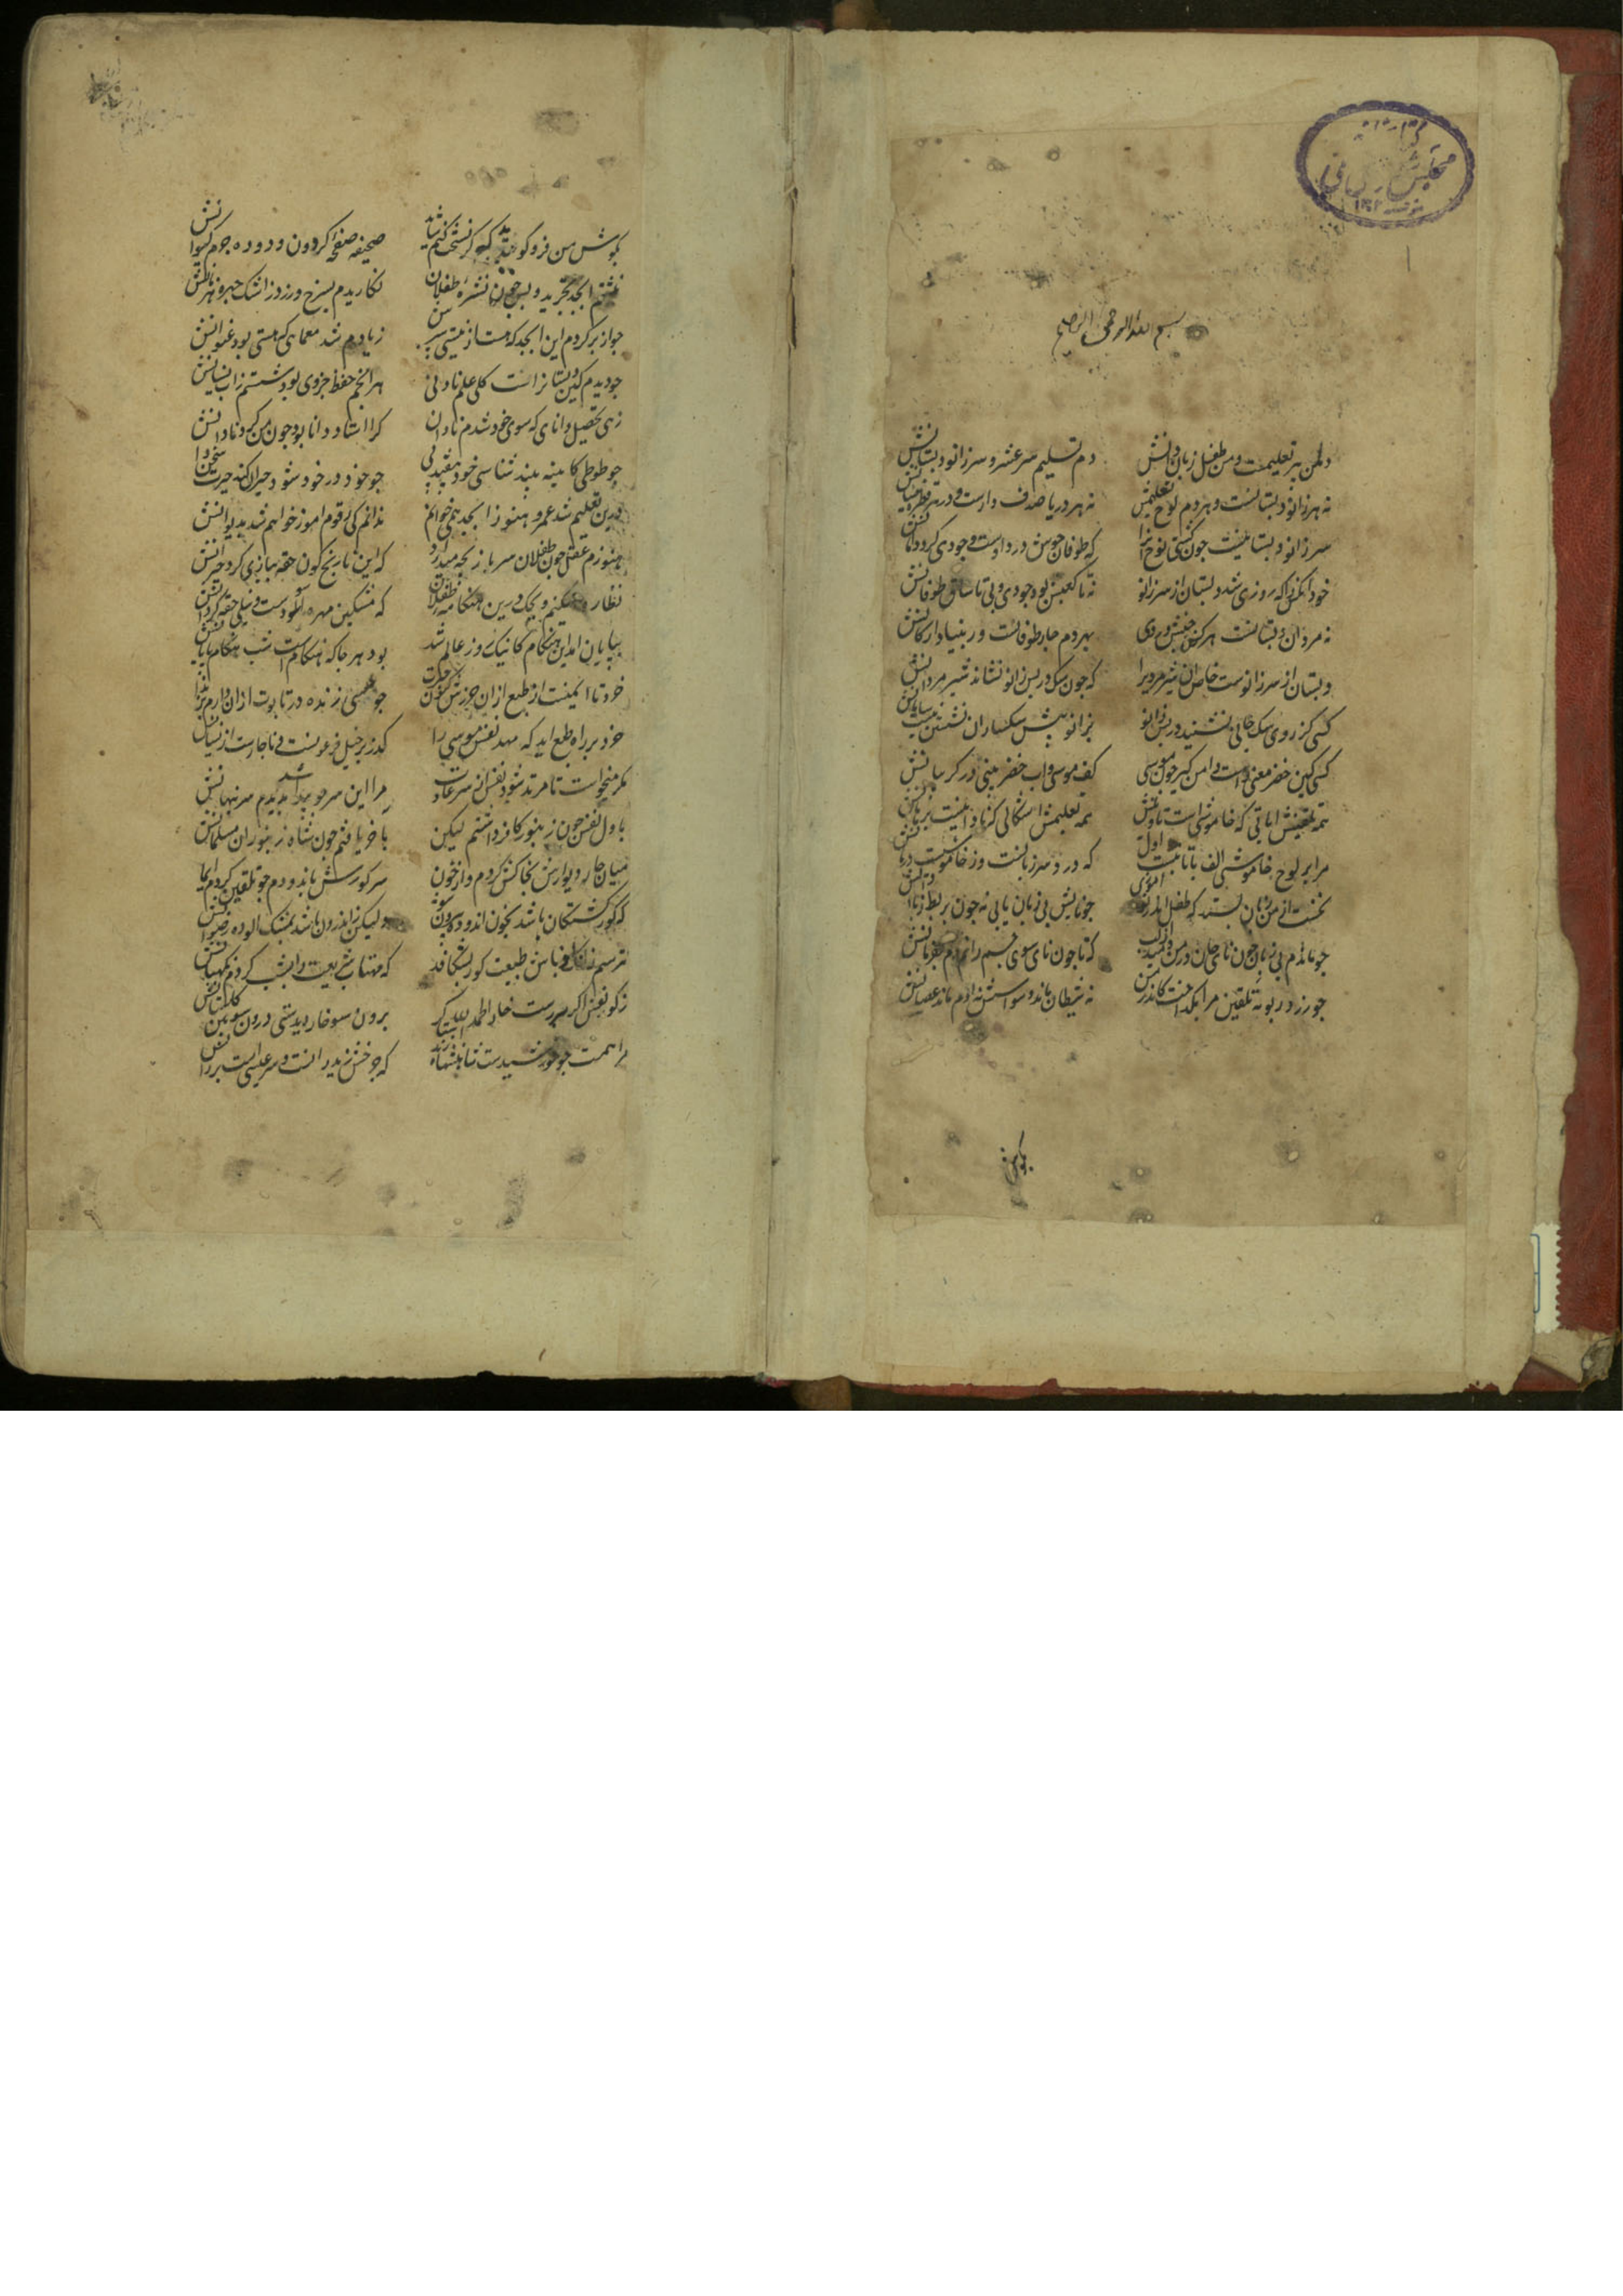 بسم الله الرحمن الرحیم
دل من پیر تعلیمست و من طفل زبان دانش دم تسلیم سرعشر و سر زانو دبستانش
نه هر زانو دبستانست و هر دم لوح تعلیمش نه هر دریا صدف دارست و در هر قطره نیسانش
سر زانو دبستانیست جون کشتی نوح انرا که طوفان جوش درد اوست و جودی کرد دامانش
خود انکس را که روزی شد دبستان از سر زانو نه تا کعبش بود جودی و نی تا ساق طوفانش
نه مرد این دبستانست هر کز جنبش هر دم جار طوفانست در بنیاد ارکانش
دبستان از سر زانوست خاص ان شیر مردیرا که جون سک در پس زانو نشاند شیر مردانش
کسی کز روی سک جانی نشیند در پس زانو بزانو پیش سکساران نشستن نیست سامانش
کسی کین خضر معنی راست دامن کیر جون موسی کف موسی و اب خضر بینی در کریبانش
همه تلقینش ایاتی که خاموشی است تاویلش همه تعلیمش اشکالی که نادانیست برهانش
مرا بر لوح خاموشی الف با تا نبشت اول که درد سر زبانست و ز خاموشیست درمانش
نخست از من زبان بستد که طفل اندر نو اموزی جو نایش بی زبان یابی نه جون بربط زبان دانش
جو ماندم بی زبان جون نای جان در من دمید از لب که تا جون نای سوی جسم رانم دم بفرمانش
جو زر در بوته تلقین مرا بکداخت کاندر من نه شیطان ماند و وسواسش نه ادم ماند و عصیانش
بکوش
بکوش من فرو کو
صحیفه صفحه کردون و دوده جرم کیوانش
نبشتم ابجد تجرید و پس جون نشره طفلان نکاریدم بسرخ و زرد ز اشک و جهره هزمانش
جو از بر کردم این ابجد که هست از نیستی سرش ز یادم شد معمایی که هستی بود عنوانش
جو دیدم کین دبستان راست کلی علم نادانی هر انچم حفظ جزوی بود شستم ز اب نسیانش
زهی تحصیل دانایی که سوی خود شدم نادان کرا استاد دانا بود جون من کرد نادانش
جو طوطی کاینه بیند شناسی خود بیفتد پی جو خود در خود شود حیران کند حیرت سخن دانش
درین تعلیم شد عمر و هنوز ابجد همی خوانم ندانم کی رقوم اموز خواهم شد بدیوانش
هنوزم عقل جون طفلان سر بازیجه میدارد که این نارنج کون حقه ببازی کرد حیرانش
نظاره میکنم ویحک درین هنکامه طفلان که مشکین مهره اسودست و نیلی حقه کردانش
بپایان امد این هنکام کانیک روز عالم شد بود هر جا که هنکام است شب هنکام پایانش
خرد تا ایمنست از طبع از ان حرزش کنم حیرت جو موسی زنده در تابوت از ان دارم بزندانش
خرد بر راه طبع اید که مهد نفس موسی را کذر بر خیل فرعونست و ناجارست از ایشانش
مکر میخواست تا مرتد شود نفس از سر عادات مرا این سر جو پیدا شد بریدم سر نپنهانش
باول نفس جون زنبور کافر داشتم لیکن باخر یافتم جون شاه زنبوران مسلمانش
میان جار دیوارش بخاکش کردم و از خون سر کورش باندودم جو تلقین کردم ایمانش
که کور کشتکان باشد بخون اندوده بیرون ولیکن ز اندرون باشد بمشک الوده رضوانش
نترسم زانک نباش طبیعت کور بشکافد که مهتاب شریعت را بشب کردم نکهبانش
ز کور نفس اکر بررست خار الحمد لله کو برون سو خار دیدستی درون سو بین کلستانش
مرا همت جو خورشیدست شاهنشاه زند استا که جرخش زیر رانست و سر عیسی است بر رانش